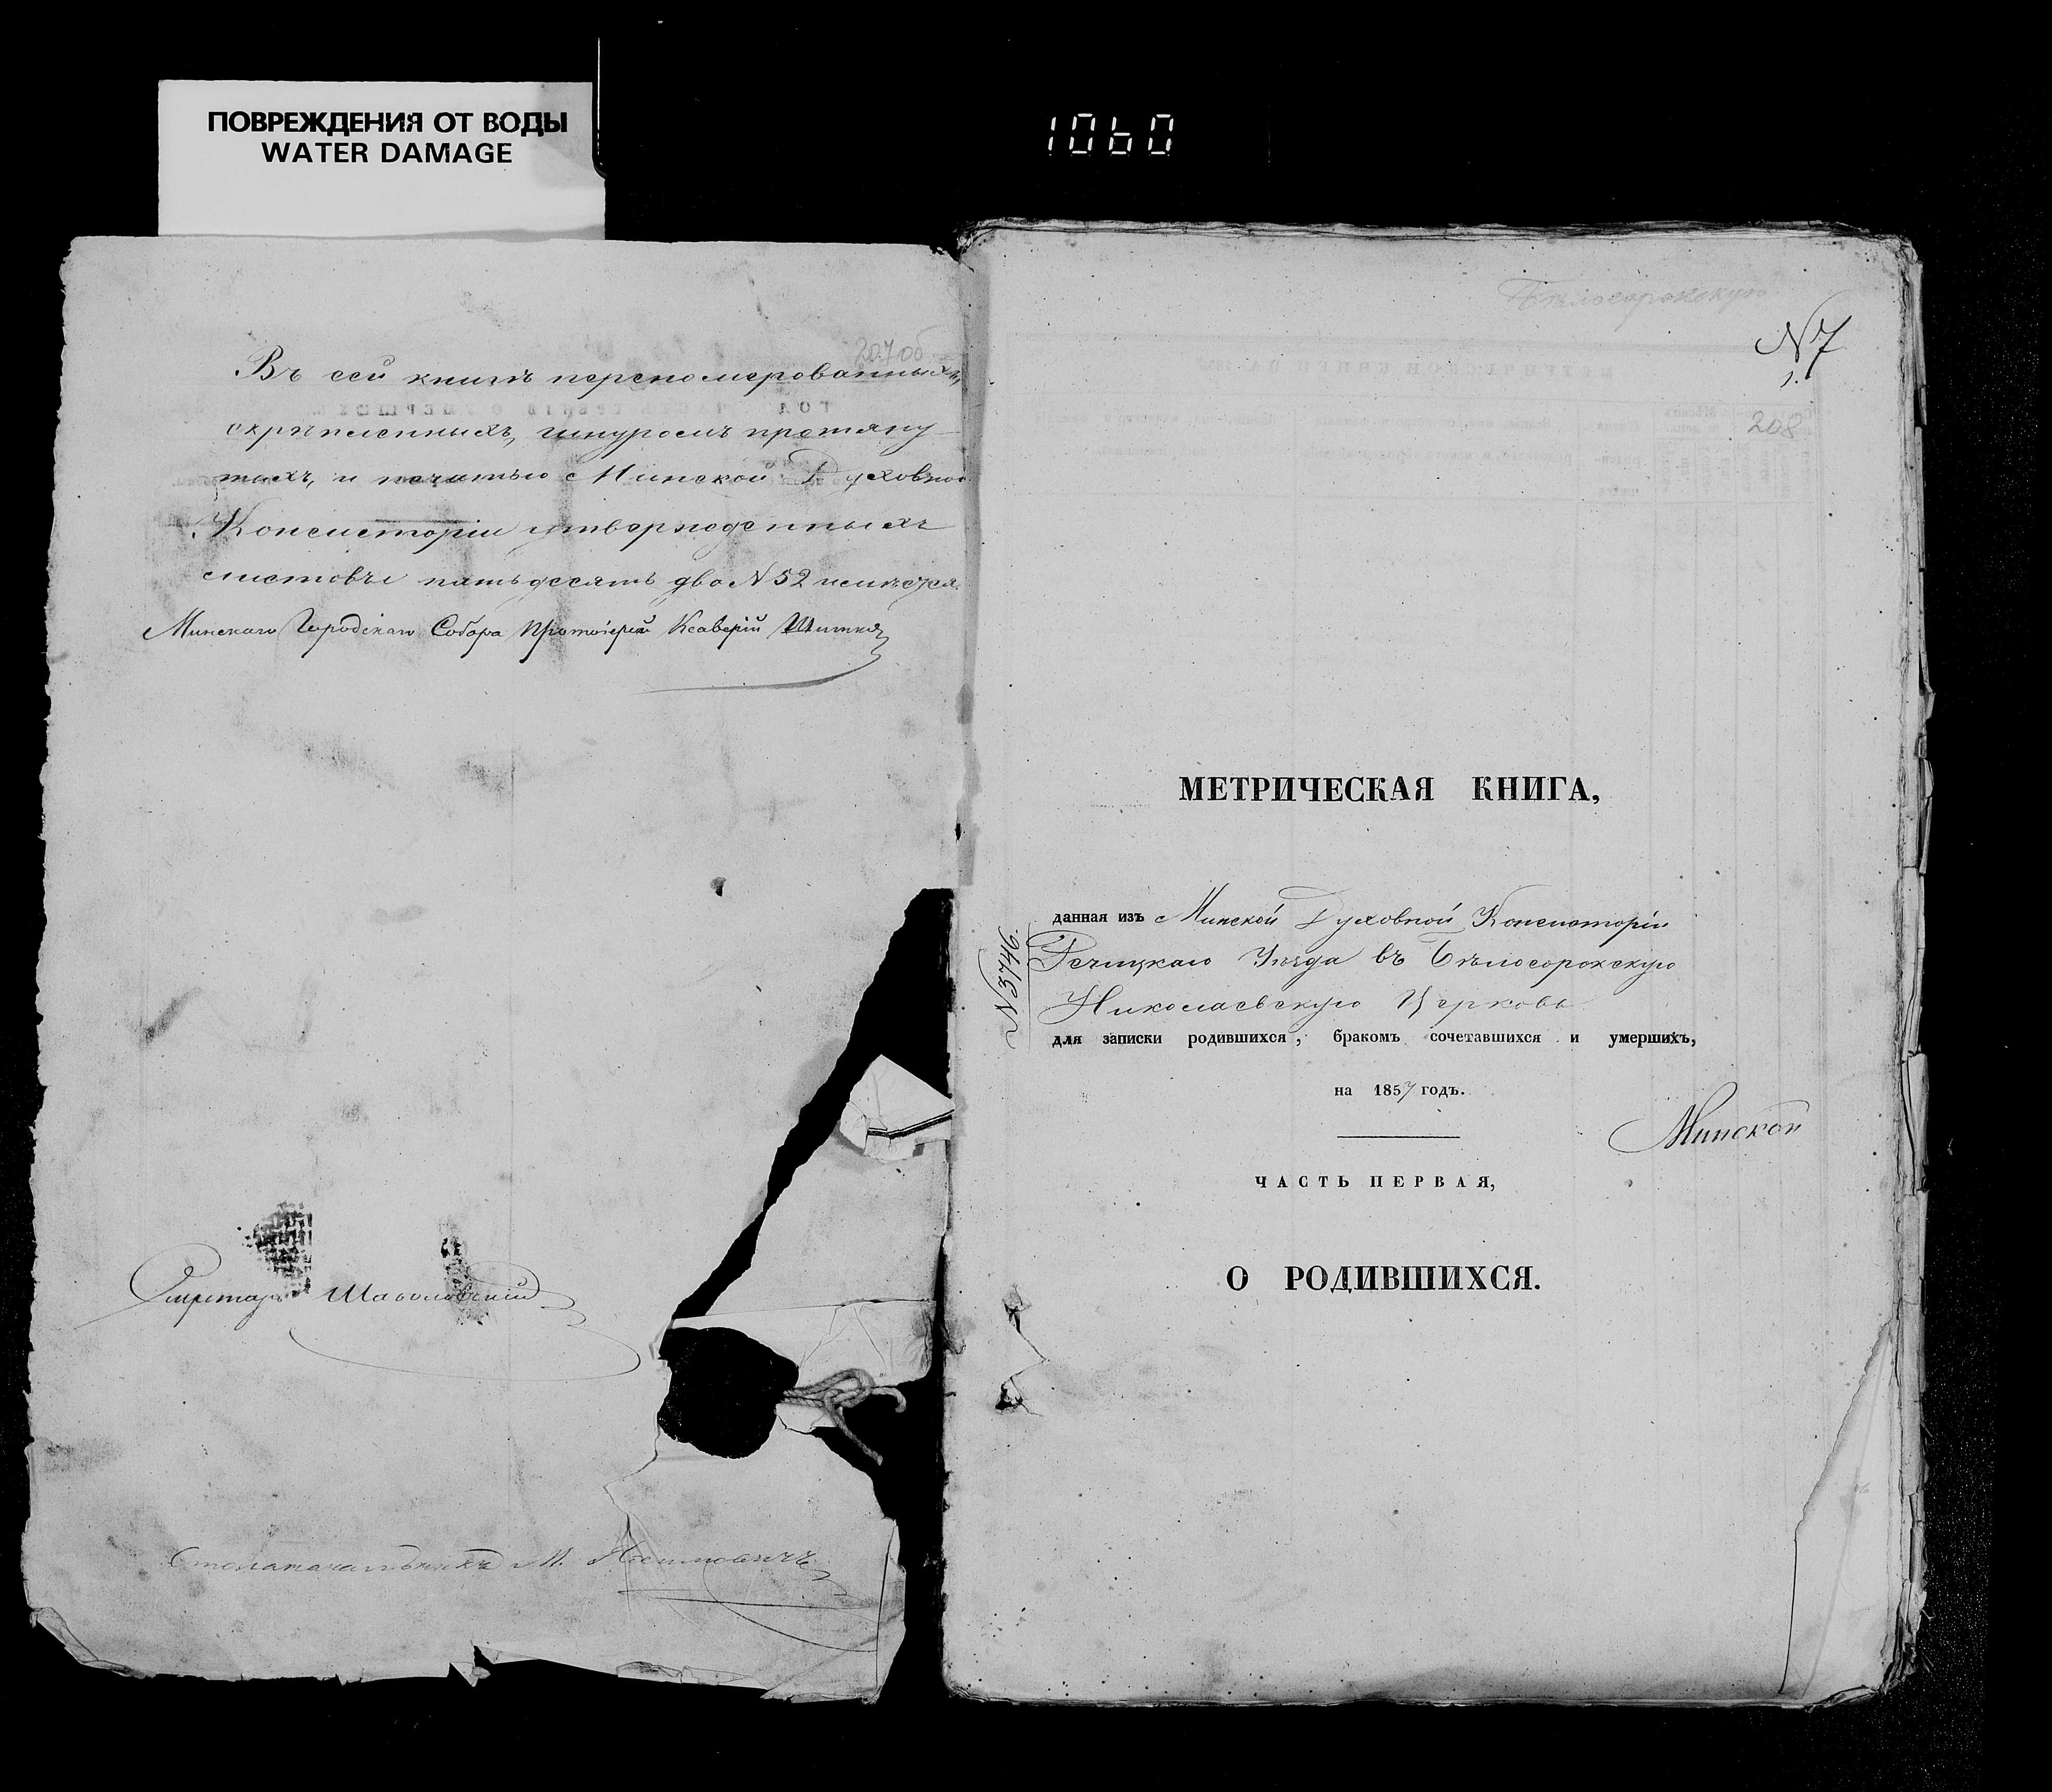 ПОВРЕЖДЕНИЯ ОТ ВОДЫ
WATER DAMAGE
1060
207об
Въ сей книгѣ перепомерованныхъ,
скрѣпленныхъ, шнуромъ протяну-
тыхъ, и печатью Минской Духовной
Консисторіи утвержденныхъ
листовъ пятьдесятъ два N 52 имѣется.
Минскаго Городскаго Собора Протоіерей Ксаверій
Секретарь
Столоначальникъ М.
Бѣлосорокскую
N 7
1.
208
МЕТРИЧЕСКАЯ КНИГА,
данная изъ Минской Духовной Консисторіи
Речицкаго Уѣзда въ Бѣлосорокскую
Николаевскую Церковь
N 3746.
для записки родившихся, бракомъ сочетавшихся и умершихъ,
на 1857 годъ.
Минской
ЧАСТЬ ПЕРВАЯ,
О РОДИВШИХСЯ.